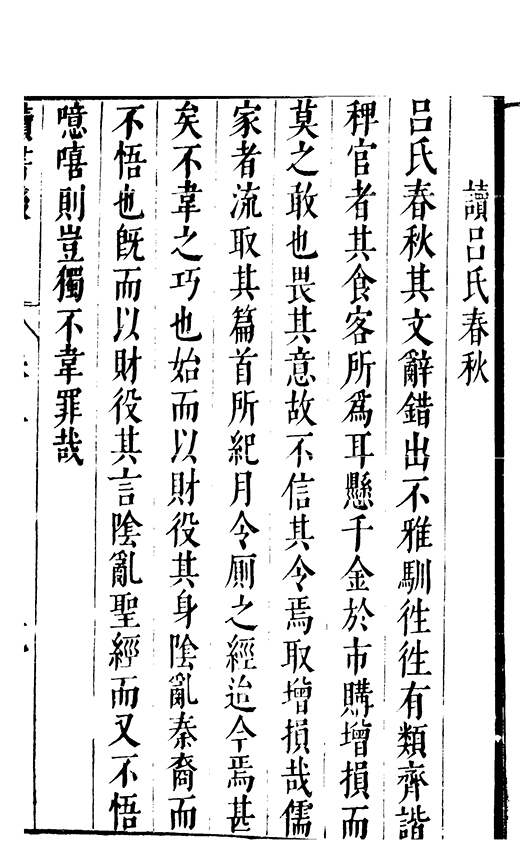 讀呂氏春秋
呂氏春秋其文辭錯出不雅馴徃徃有類齊諧
稗官者其食客所爲耳懸千金於市購增損而
莫之敢也畏其意故不信其令焉取增損哉儒
家者流取其篇首所紀月令厠之經迨今焉甚
矣不韋之巧也始而以財役其身陰亂秦裔而
不悟也旣而以財役其言陰亂聖經而又不悟
噫嘻則豈獨不韋罪哉